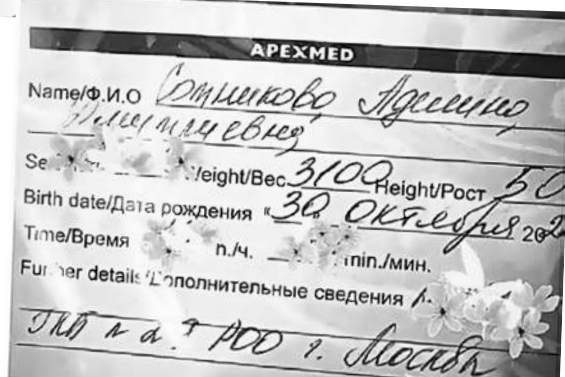 APEXMED
Name/Ф.И.О Сотникова Аделина
Дмитриевна
Weight/Вес 3100 Height/Рост 50
Birth date/Дата рождения "30" Октября 202
Time/Время h./ч. min./мин.
Further details/Дополнительные сведения
РОО г. Москвы